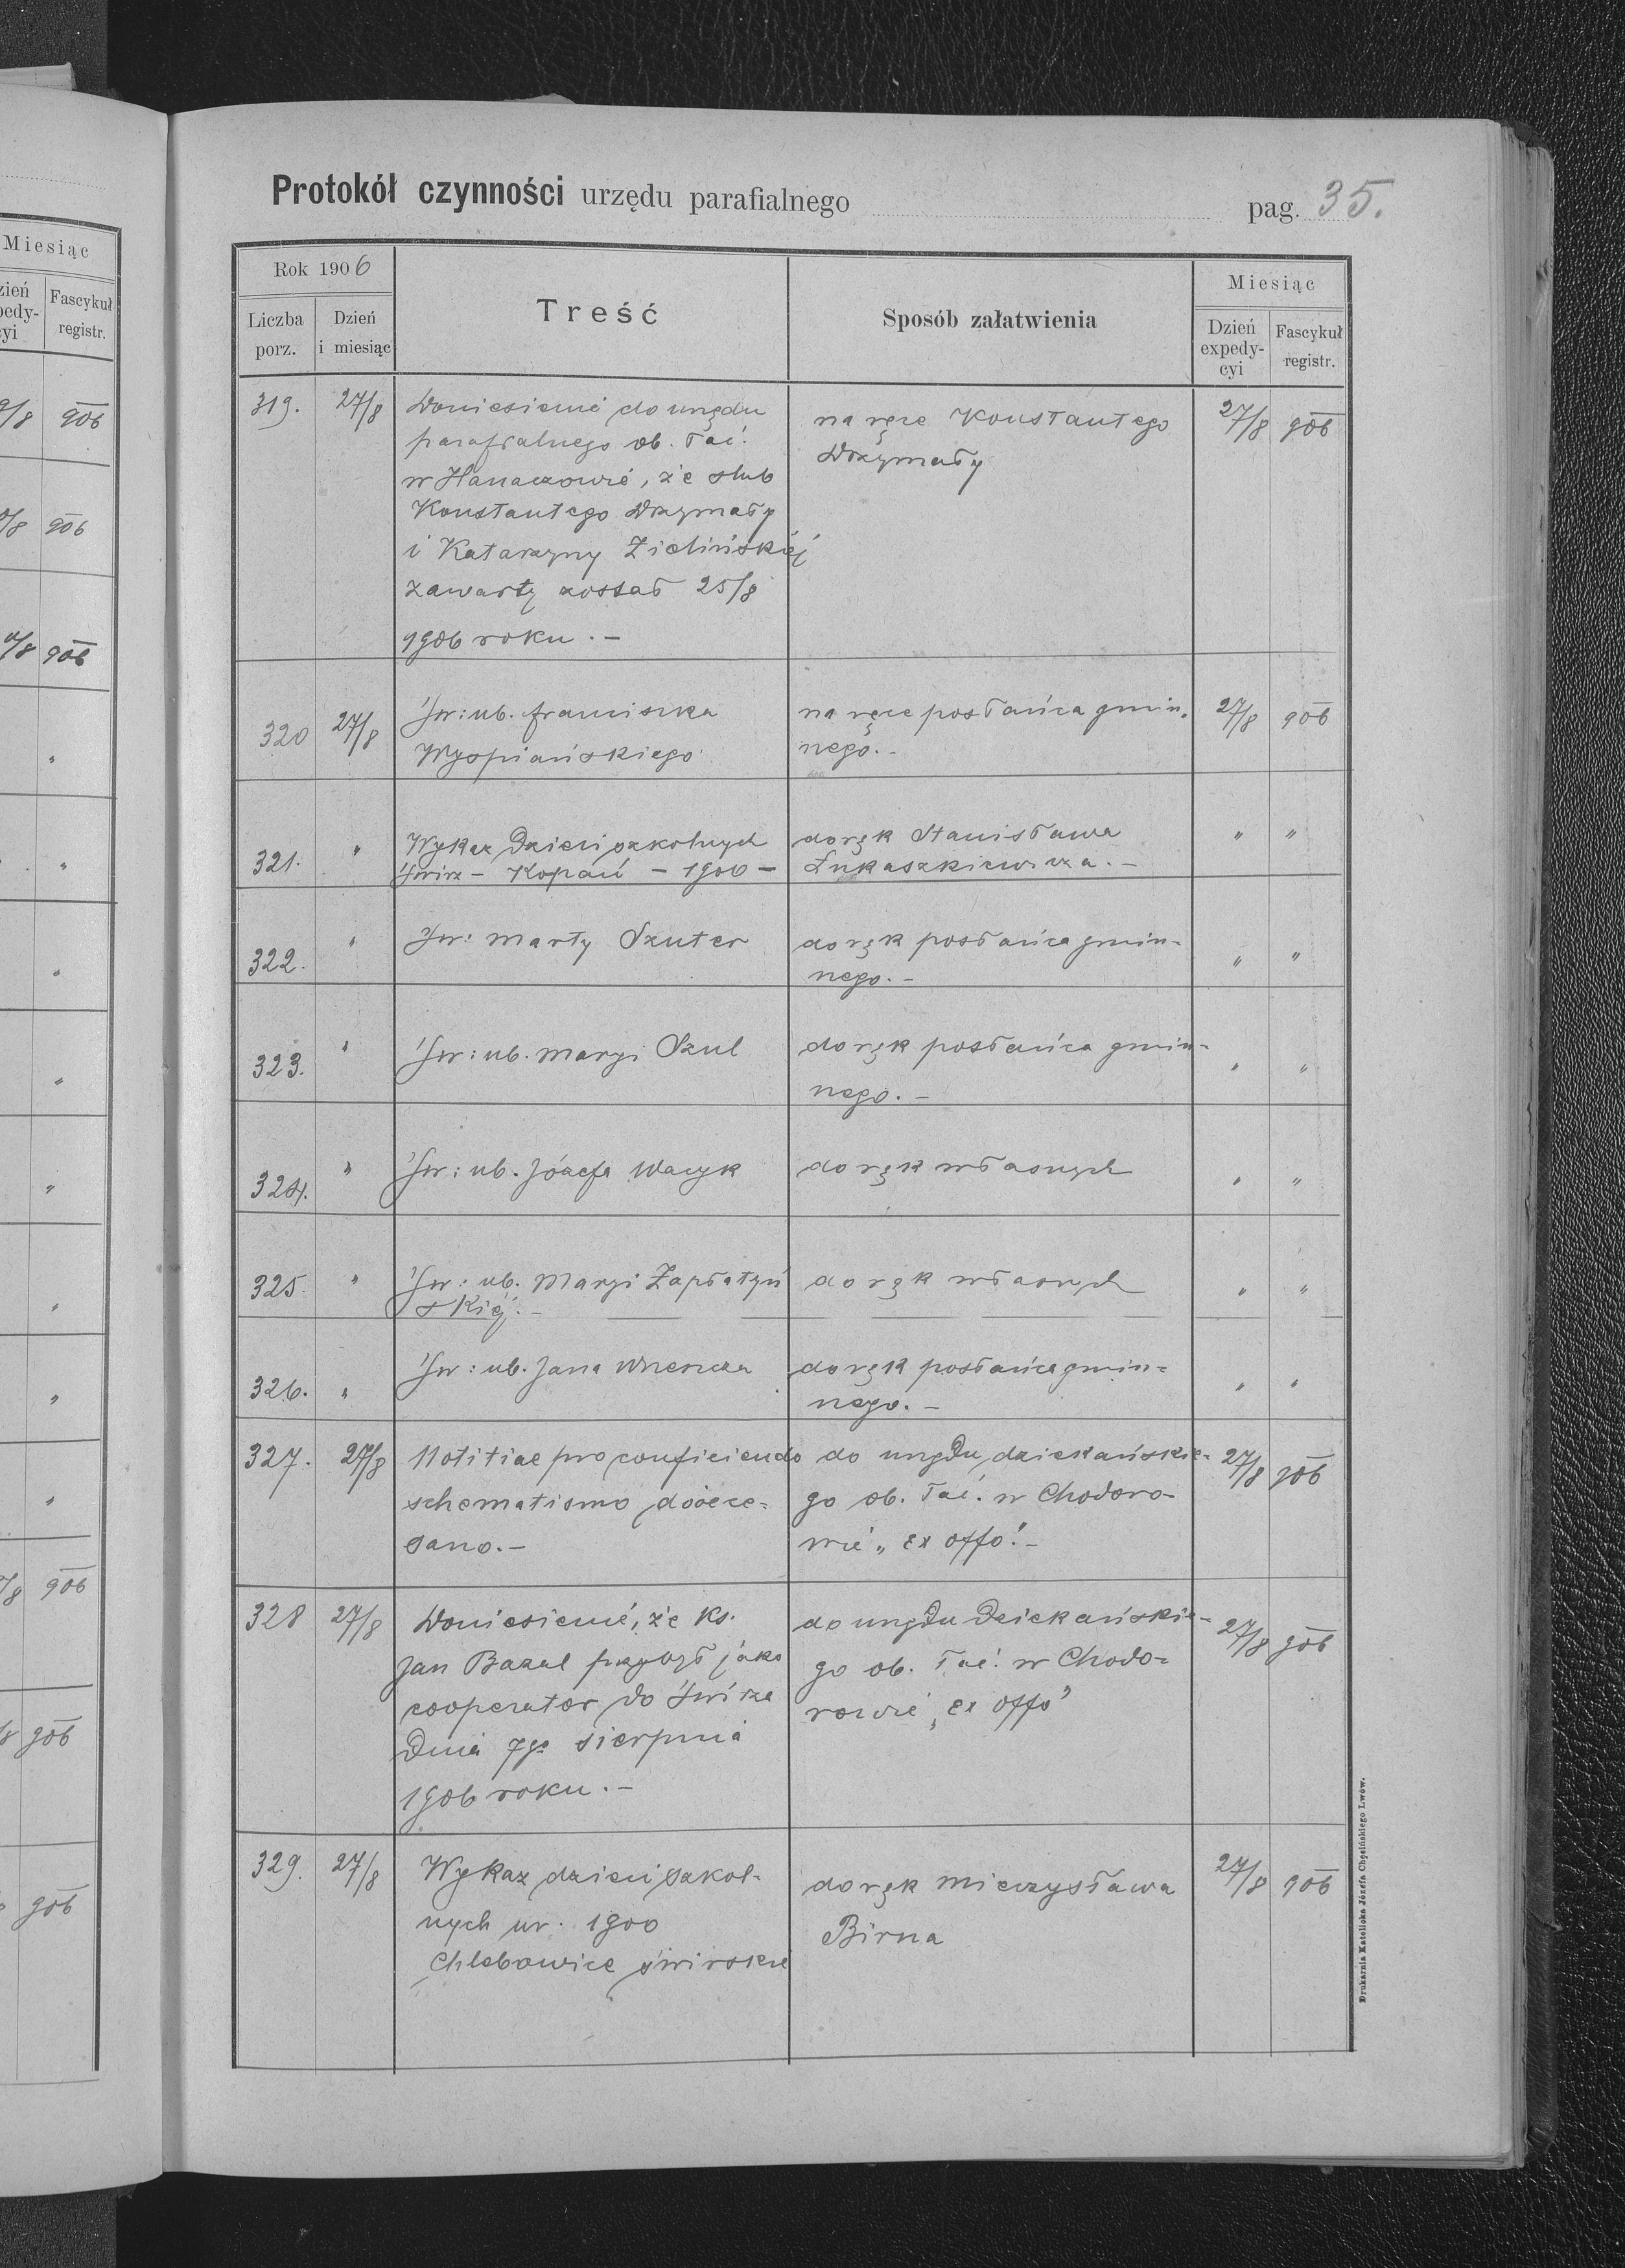 Miesiąc
Fascykuł
registr.
9/8 906
906
906
"
"
"
"
"
"
"
"
906
906
906
Protokół czynności urzędu parafialnego pag. 35.
Rok 1906 Treść Sposób załatwienia Miesiąc
Liczba porz. Dzień i miesiąc Dzień expedy-cyi Fascykuł registr.
319. 27/8 Doniesienie do urzędu na ręce Konstantego 27/8 906
parafialnego ob. łać. Drzymały
w Hanaczowie, że ślub
Konstantego Drzymały
i Katarzyny Zielińskiej
zawarty został 25/8
1906 roku. –
320 27/8 Św: ub. Franciszka na ręce posłańca gmin- 27/8 906
Wyspiańskiego nego. –
321. " Wykaz Dzieci szkolnych do rąk Stanisława " "
Świrz – Kopań – 1900 – Łukaszkiewicza. –
322. " Św: Marty Szuter do rąk posłańca gmin- " "
nego. –
323. " Św: ub. Maryi Szul do rąk posłańca gmin- " "
nego. –
324. " Św: ub. Józefa Wacyk do rąk własnych " "
325. " Św: ub. Maryi Zapłatyń do rąk własnych " "
skiej. –
326. " Św: ub. Jana do rąk posłańca gmin= " "
nego. –
327. 27/8 Notitiae pro conficiendo do urzędu dziekańskie- 27/8 906
schematismo dioece= go ob. łać. w Chodoro-
sano. – wie „ex offo". –
328 27/8 Doniesienie, że ks. do urzędu Dziekańskie- 27/8 906
Jan Bazal przybył jako go ob. łać. w Chodo=
cooperator do Świrza rowie „ex offo"
Dnia 7go sierpnia
1906 roku. –
329. 27/8 Wykaz dzieci szkol- do rąk Mieczysława 27/8 906
nych ur. 1900 Birna
Chlebowice świrskie
Drukarnia Katolicka Józefa Chęcińskiego Lwów.